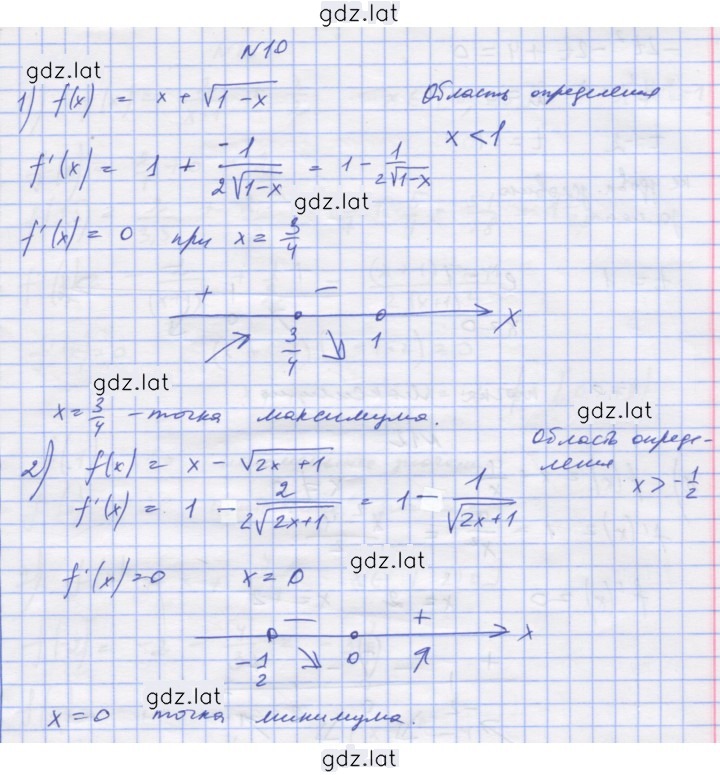 gdz.lat
N10
gdz.lat
1) f(x) = x + √(1 - x)
Область определения
x < 1
f'(x) = 1 + -1/(2√(1-x)) = 1 - 1/(2√(1-x))
gdz.lat
f'(x) = 0 при x = 3/4
+ −
3/4 1 x
gdz.lat
x = 3/4 - точка максимума.
gdz.lat
2) f(x) = x - √(2x + 1)
Область опреде-
ления
x > -1/2
f'(x) = 1 - 2/(2√(2x+1)) = 1 - 1/√(2x+1)
gdz.lat
f'(x) = 0 x = 0
− +
-1/2 0 x
gdz.lat
x = 0 точка минимума.
gdz.lat